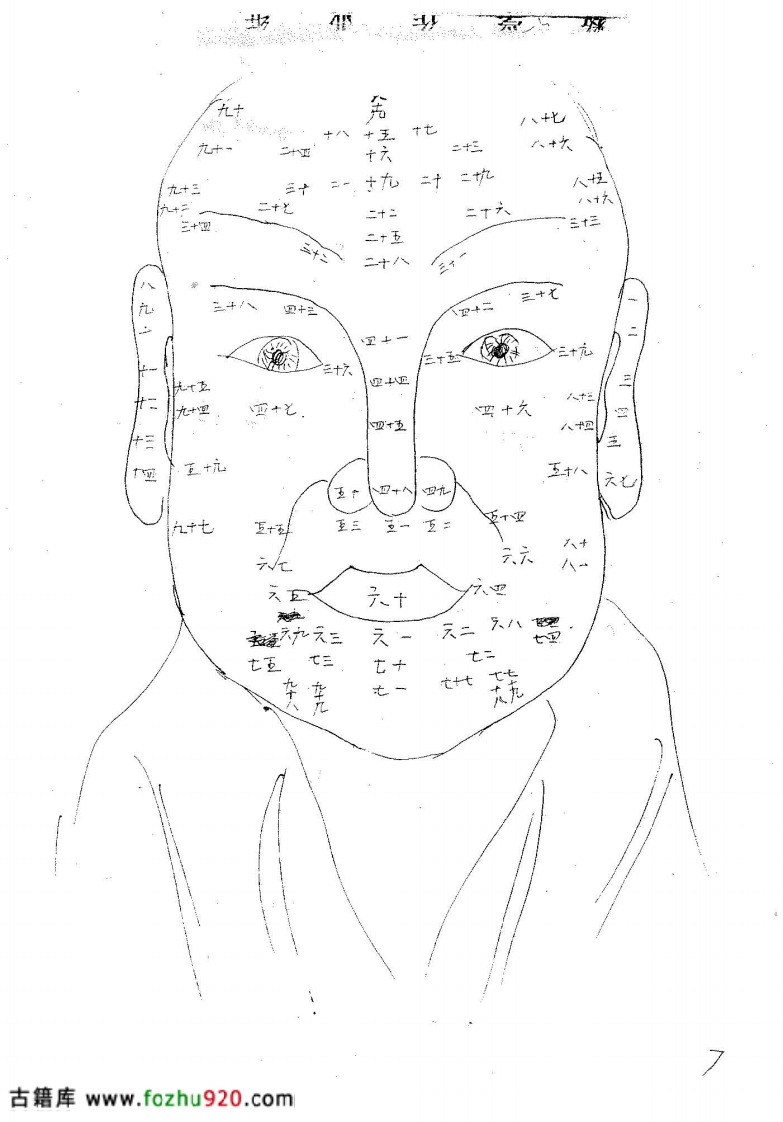 九十
十八 十五 十七 八十七
九十一 二十四 十六 二十三 八十六
九十三 三十 二一 十九 二十 二十九 八十五
九十二 二十七 二十二 二十六 八十六
三十四 二十五 三十三
三十二 二十八 三十一
八 三十八 四十三 四十二 三十七 一
九 二
四十一
三十六 三十五 三十九
十一 四十四 三
九十五 八十三
十二 九十四 四十七 四十五 四十六 八十四 四
十三 五
十四 五十九 五十 四十八 四九 五十八 六七
九十七 五十五 五三 五一 五二 五十四
六七 六六 八十
八一
六五 六十 六四
六九 六三 六一 六二 六八 七四
七五 七三 七十 七二
九十八 九十九 七一 七十七 七十八 七十九
7
古籍库 www.fozhu920.com